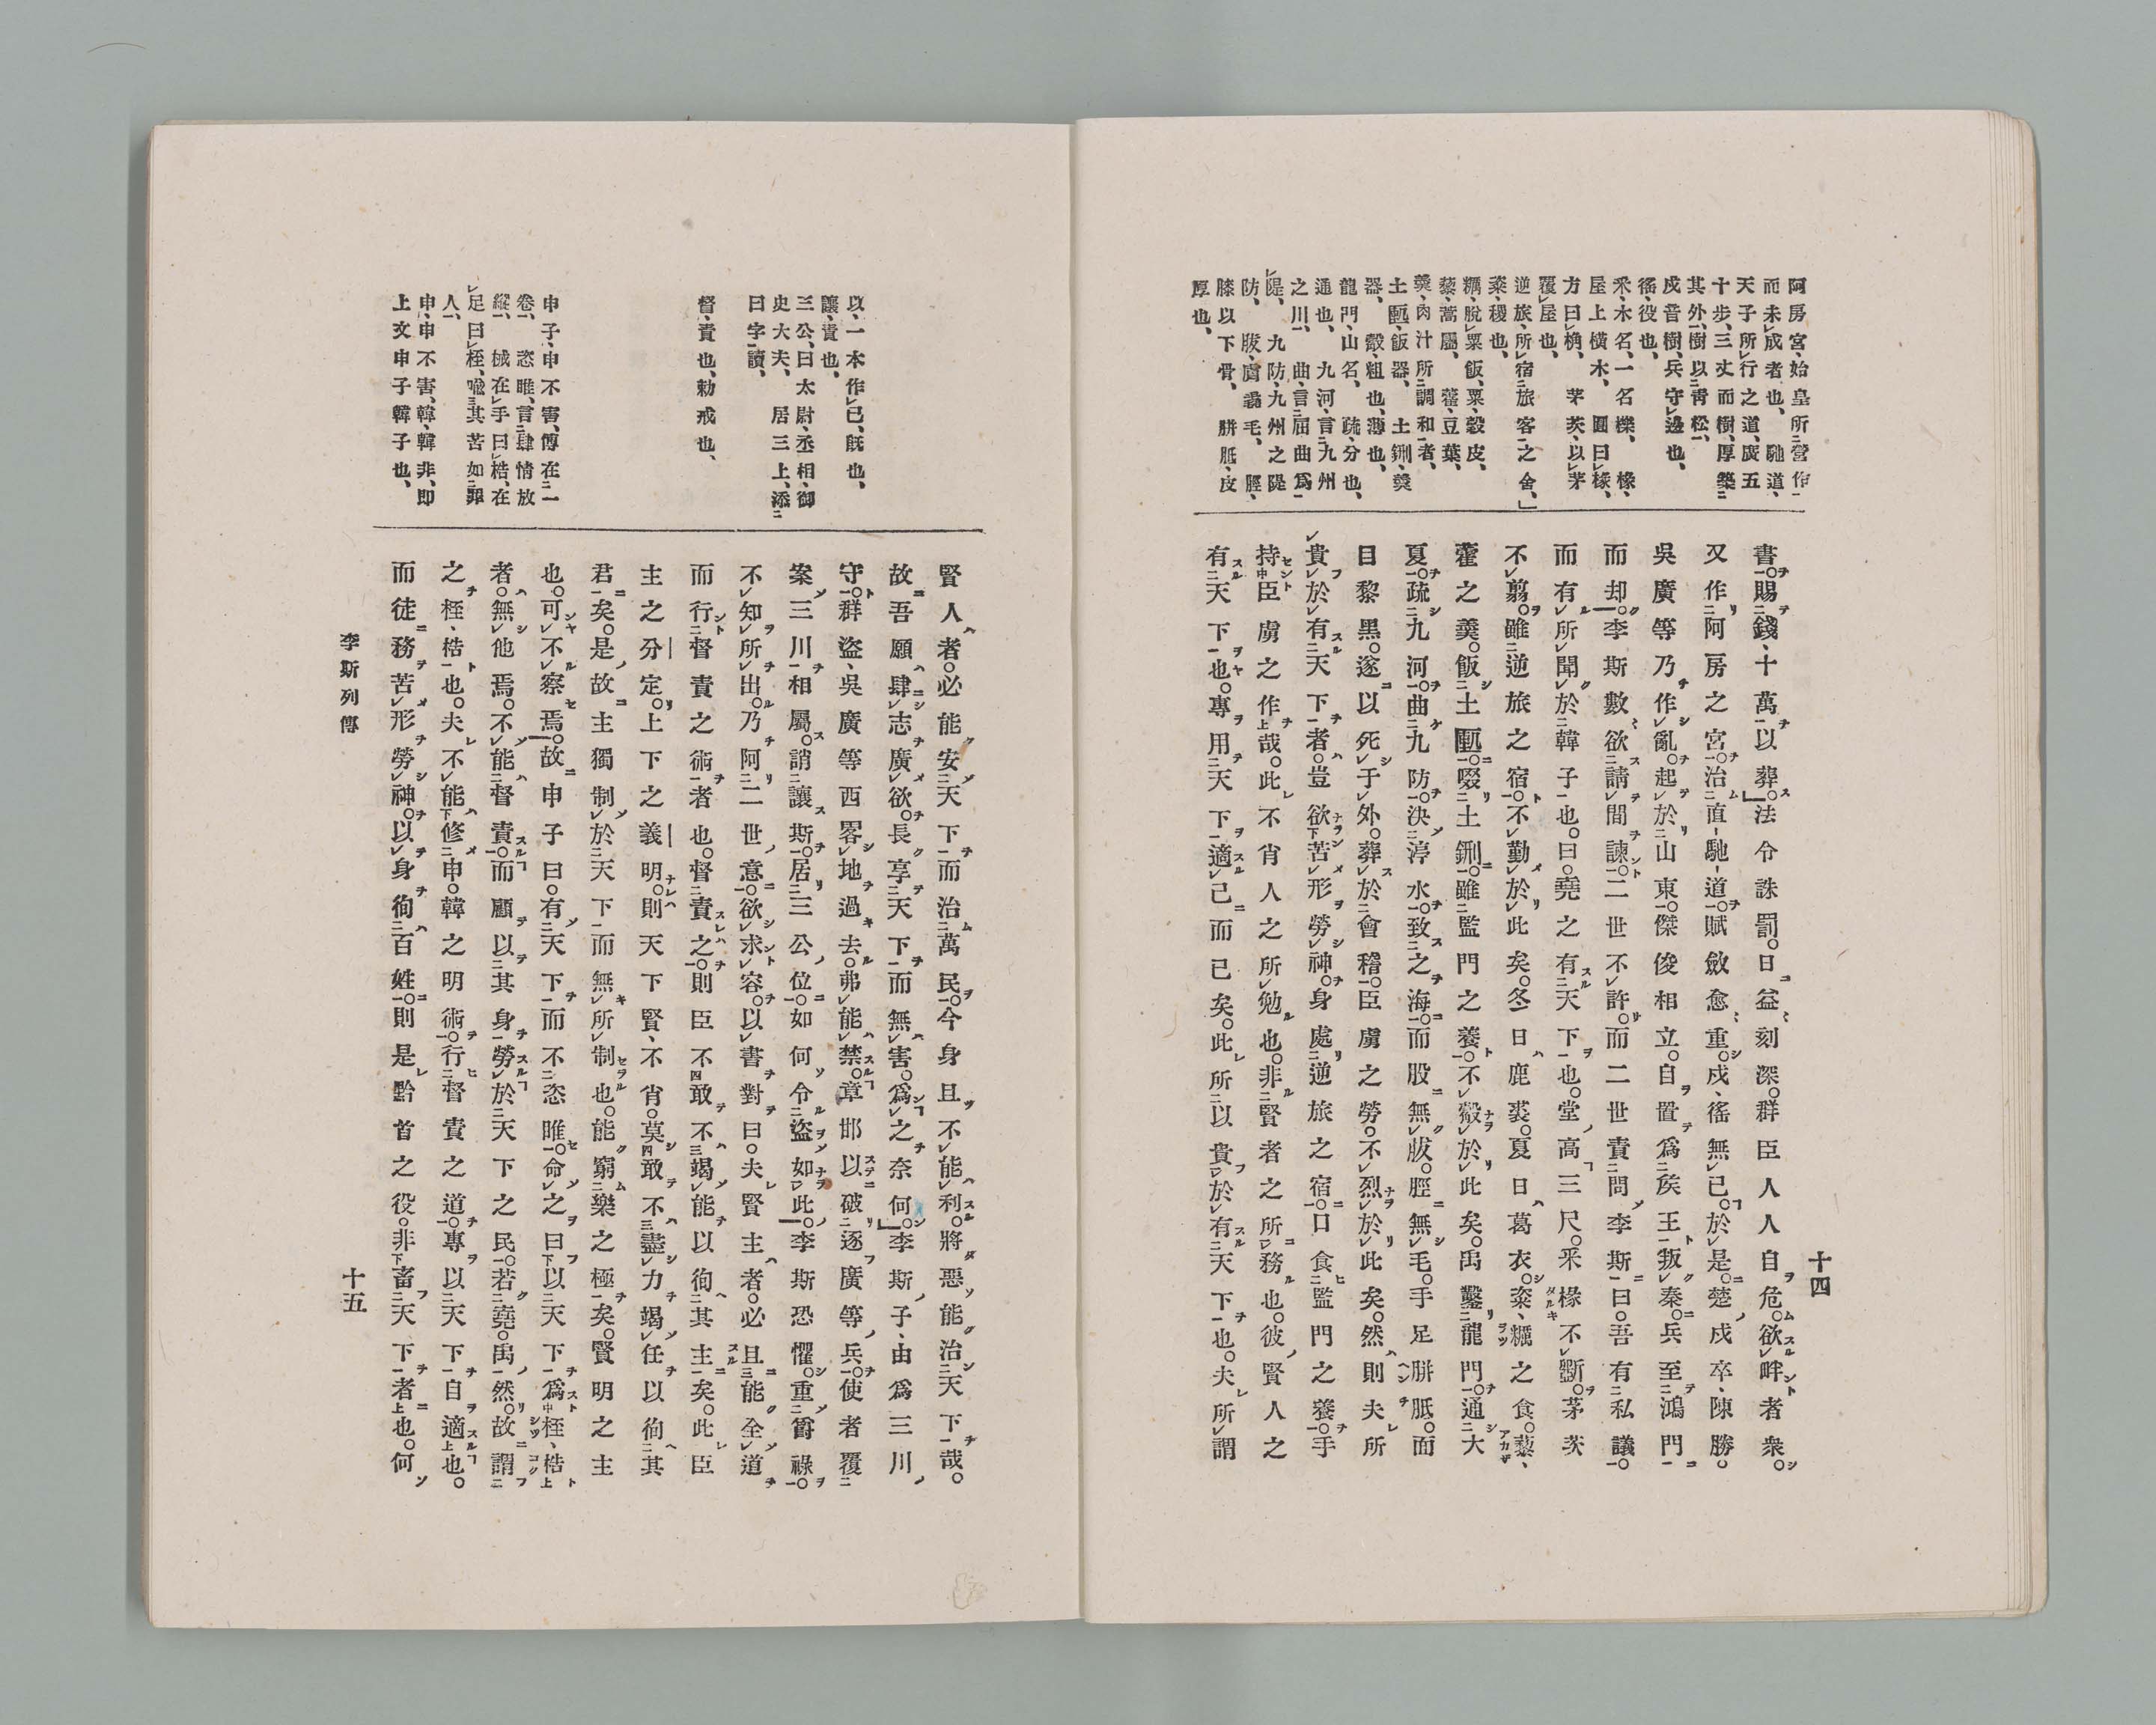 阿房宮、始皇所營作
而未成者也、馳道、
天子所行之道、廣五
十步、三丈而樹、厚築
其外、樹以青松、
戍音樹、兵守邊也、
徭、役也、
采、木名、一名櫟、椽、
屋上橫木、圓曰椽、
方曰桷、茅茨、以茅
覆屋也、
逆旅、所宿旅客之舍、」
粢、稷也、
糲、脫粟飯、粟、穀皮、
藜、蒿屬、藿、豆葉、
羹、肉汁所調和者、
土匭、飯器、土鉶、羹
器、觳、粗也、薄也、
龍門、山名、疏、分也、
通也、九河、言九州
之川、曲、言屈曲爲
隄、九防、九州之隄
防、胈、膚毳毛、脛、
膝以下骨、胼胝、皮
厚也、
書。賜錢、十萬以葬。」法令誅罰。日益刻深。群臣人人自危。欲畔者衆。
又作阿房之宮。治直馳道。賦斂愈重。戍、徭無已。於是。楚戍卒、陳勝。
吳廣等乃作亂。起於山東。傑俊相立。自置爲矦王叛秦。兵至鴻門
而却。李斯數欲請間諫。二世不許。而二世責問李斯曰。吾有私議。
而有所聞於韓子也。曰。堯之有天下也。堂高三尺。采椽不斲。茅茨
不翦。雖逆旅之宿。不勤於此矣。冬日鹿裘。夏日葛衣。粢、糲之食。藜、
藿之羹。飯土匭。啜土鉶。雖監門之養。不觳於此矣。禹鑿龍門。通大
夏。疏九河。曲九防。決渟水。致之海。而股無胈。脛無毛。手足胼胝。面
目黎黑。遂以死于外。葬於會稽。臣虜之勞。不烈於此矣。然則夫所
貴於有天下者。豈欲苦形勞神。身處逆旅之宿。口食監門之養。手
持臣虜之作哉。此不肖人之所勉也。非賢者之所務也。彼賢人之
有天下也。專用天下適己而已矣。此所以貴於有天下也。夫所謂
十四
以、一本作已、旣也、
讓、責也、
三公、曰太尉、丞相、御
史大夫、居三上、添
曰字讀、
督、責也、勅戒也、
申子、申不害、傳在一
卷、恣睢、言肆情放
縱、械在手曰梏、在
足曰桎、喩其苦如罪
人、
申、申不害、韓、韓非、卽
上文申子韓子也、
賢人者。必能安天下而治萬民。今身且不能利。將惡能治天下哉。
故吾願肆志廣欲。長享天下而無害。爲之奈何。」李斯子、由爲三川
守。群盜、吳廣等西畧地過去。弗能禁。章邯以破逐廣等兵。使者覆
案三川相屬。誚讓斯。居三公位。如何令盜如此。李斯恐懼。重爵祿。
不知所出。乃阿二世意。欲求容。以書對曰。夫賢主者。必且能全道
而行督責之術者也。督責之。則臣不敢不竭能以徇其主矣。此臣
主之分定。上下之義明。則天下賢、不肖。莫敢不盡力竭任以徇其
君矣。是故主獨制於天下而無所制也。能窮樂之極矣。賢明之主
也。可不察焉。故申子曰。有天下而不恣睢。命之曰以天下爲桎、梏
者。無他焉。不能督責。而顧以其身勞於天下之民。若堯。禹然。故謂
之桎、梏也。夫不能修申。韓之明術。行督責之道。專以天下自適也。
而徒務苦形勞神。以身徇百姓。則是黔首之役。非畜天下者也。何
李斯列傳
十五